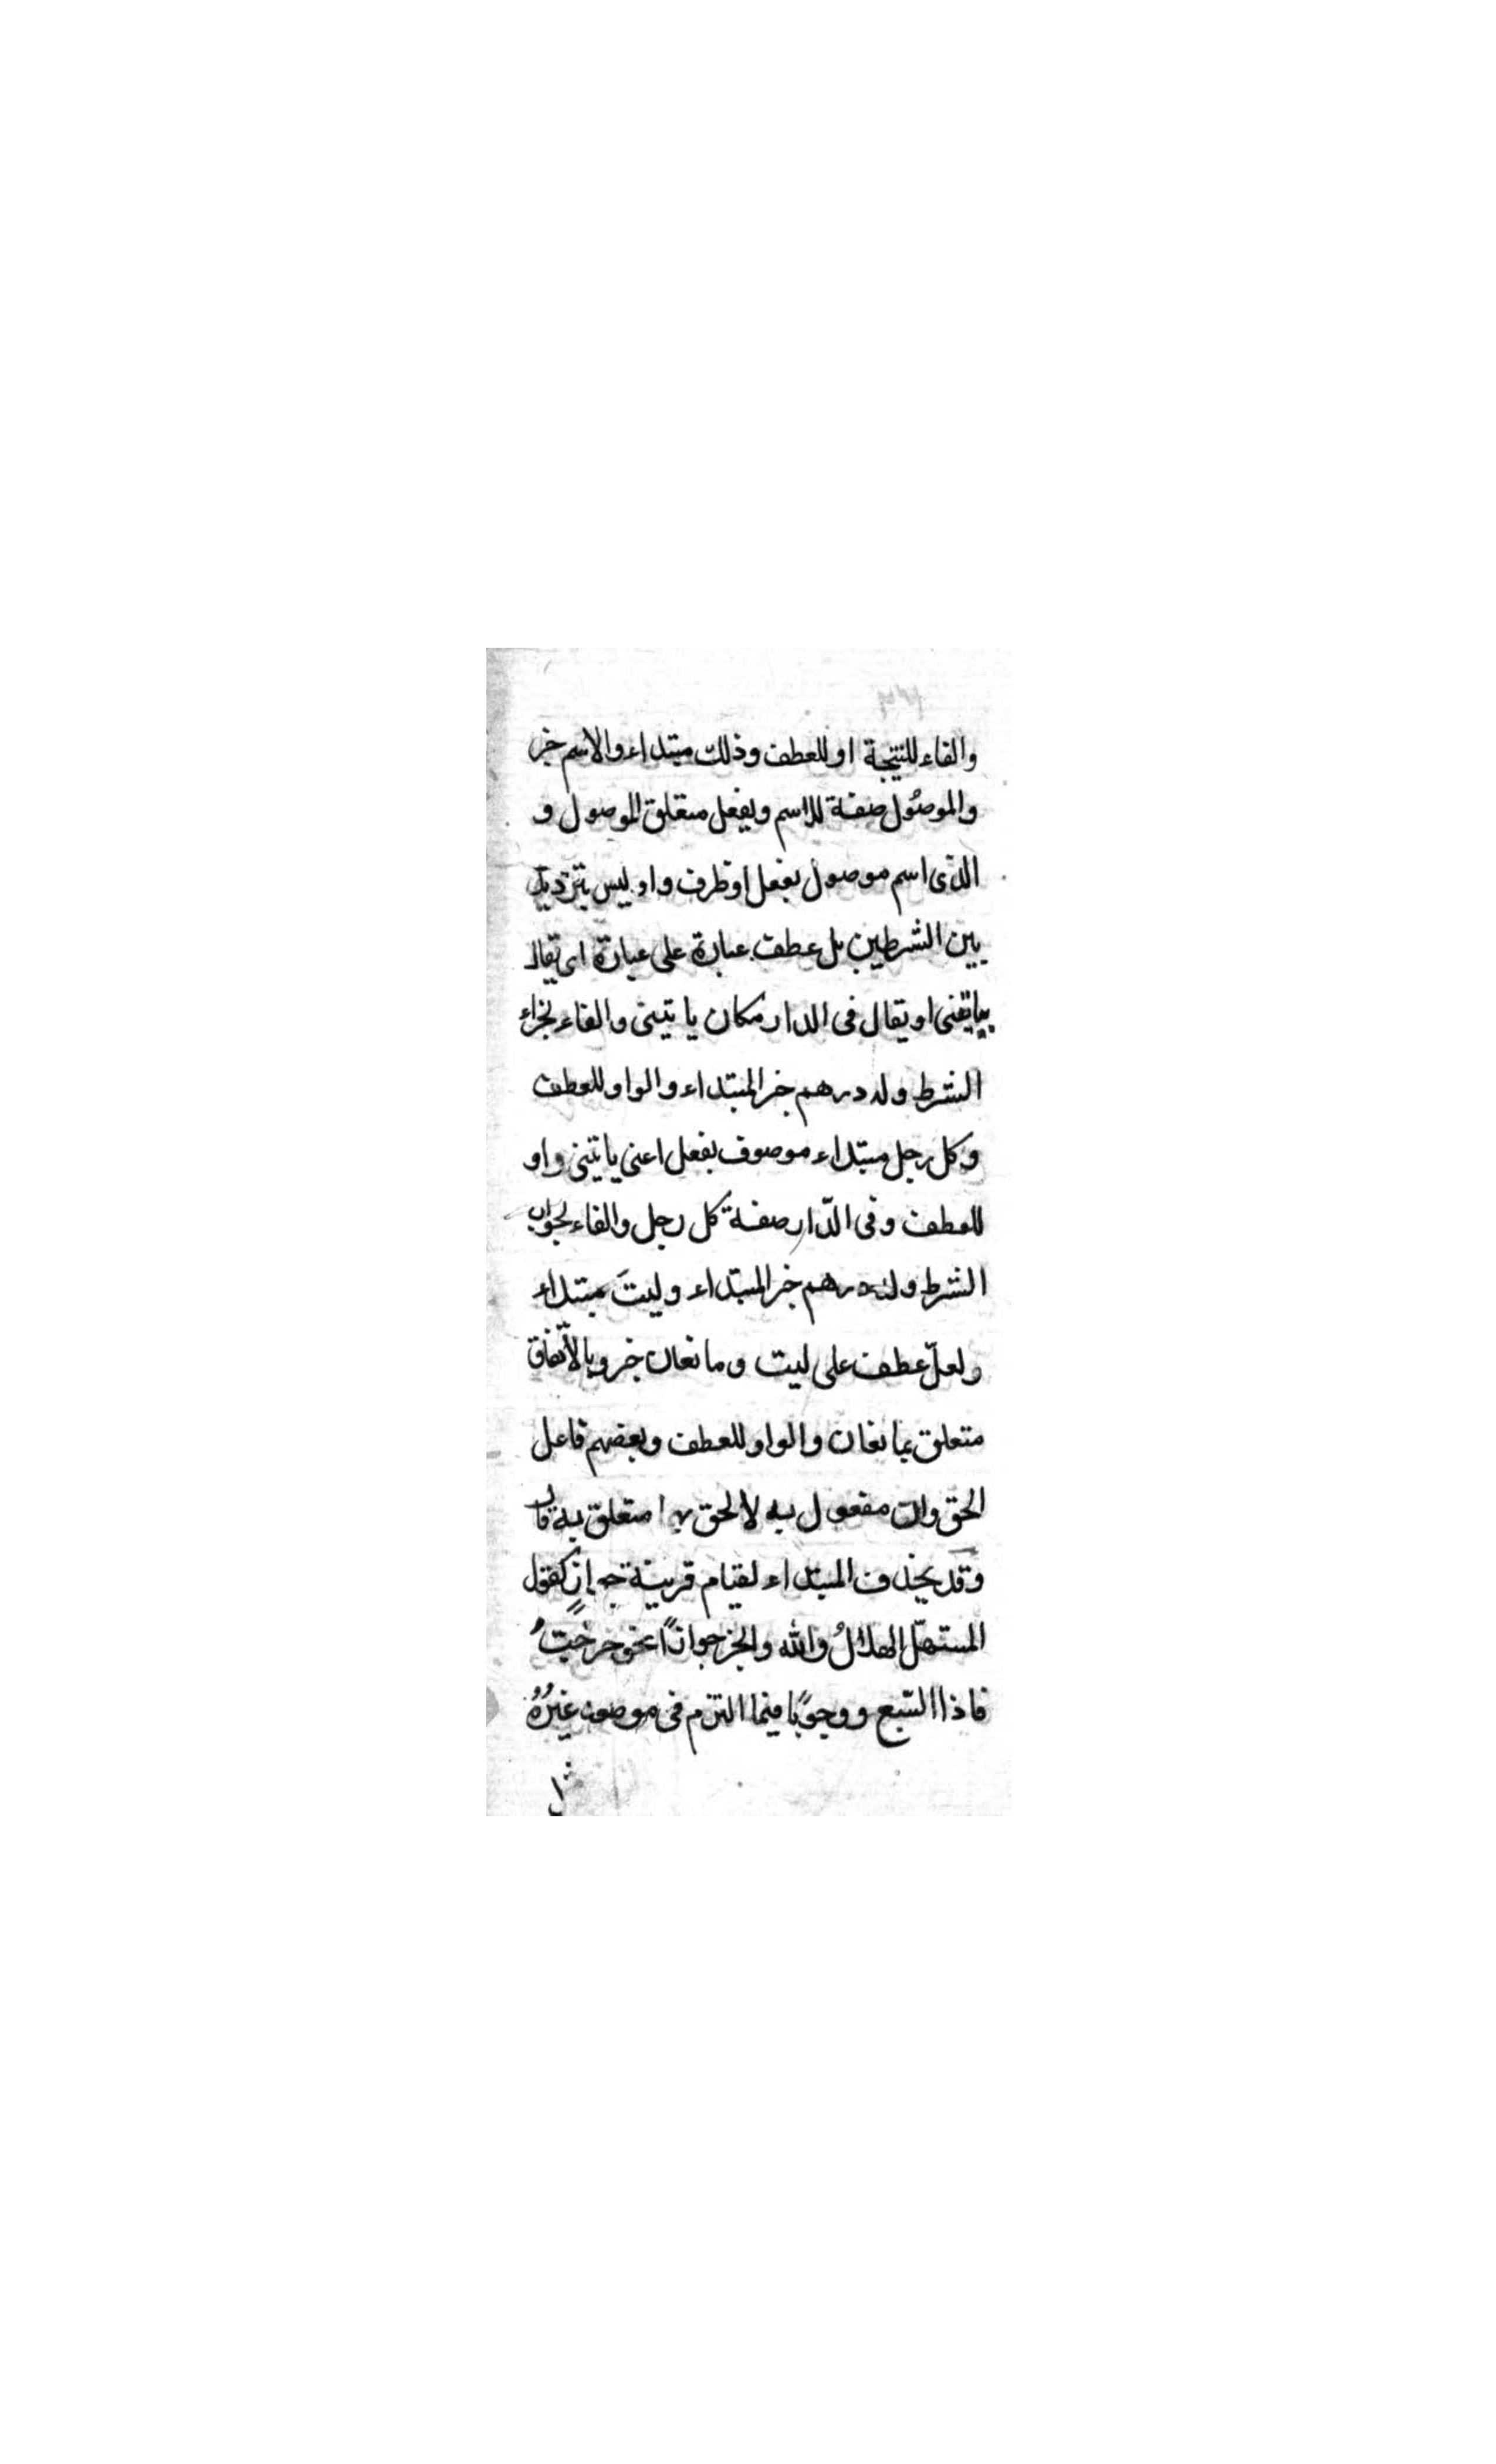 والفاء للنتيجة او للعطف وذلك مبتداء والاسم خبر
والموصُول صفة للاسم وبفعل متعلق الموصول و
الذى اسم موصول بفعل او ظرف واو ليس بترديد
بين الشرطين بل عطف عبارة على عبارة اى يقال
ياتينى او يقال فى الدار مكان ياتينى والفاء لجزاء
الشرط وله درهم خبر المبتداء والواو للعطف
وكل رجل مبتداء موصوف بفعل اعنى ياتينى واو
للعطف وفى الدّار صفة كل رجل والفاء لجواب
الشرط وله درهم خبر المبتداء وليتَ مبتداء
ولعلّ عطف على ليت ومانعان خبر وبالاتّفاق
متعلق بمانعان والواو للعطف وبعضهم فاعل
الحق وان مفعول به لالحق بها متعلق به قال
وقد يحذف المبتداء لقيام قرينة كقول
المستهلّ الهلالُ والله والخبر جوازًا نحو خرجتُ
فاذا السّبع ووجوبًا فيما التزم فى موضعه غيرُهُ
مثل